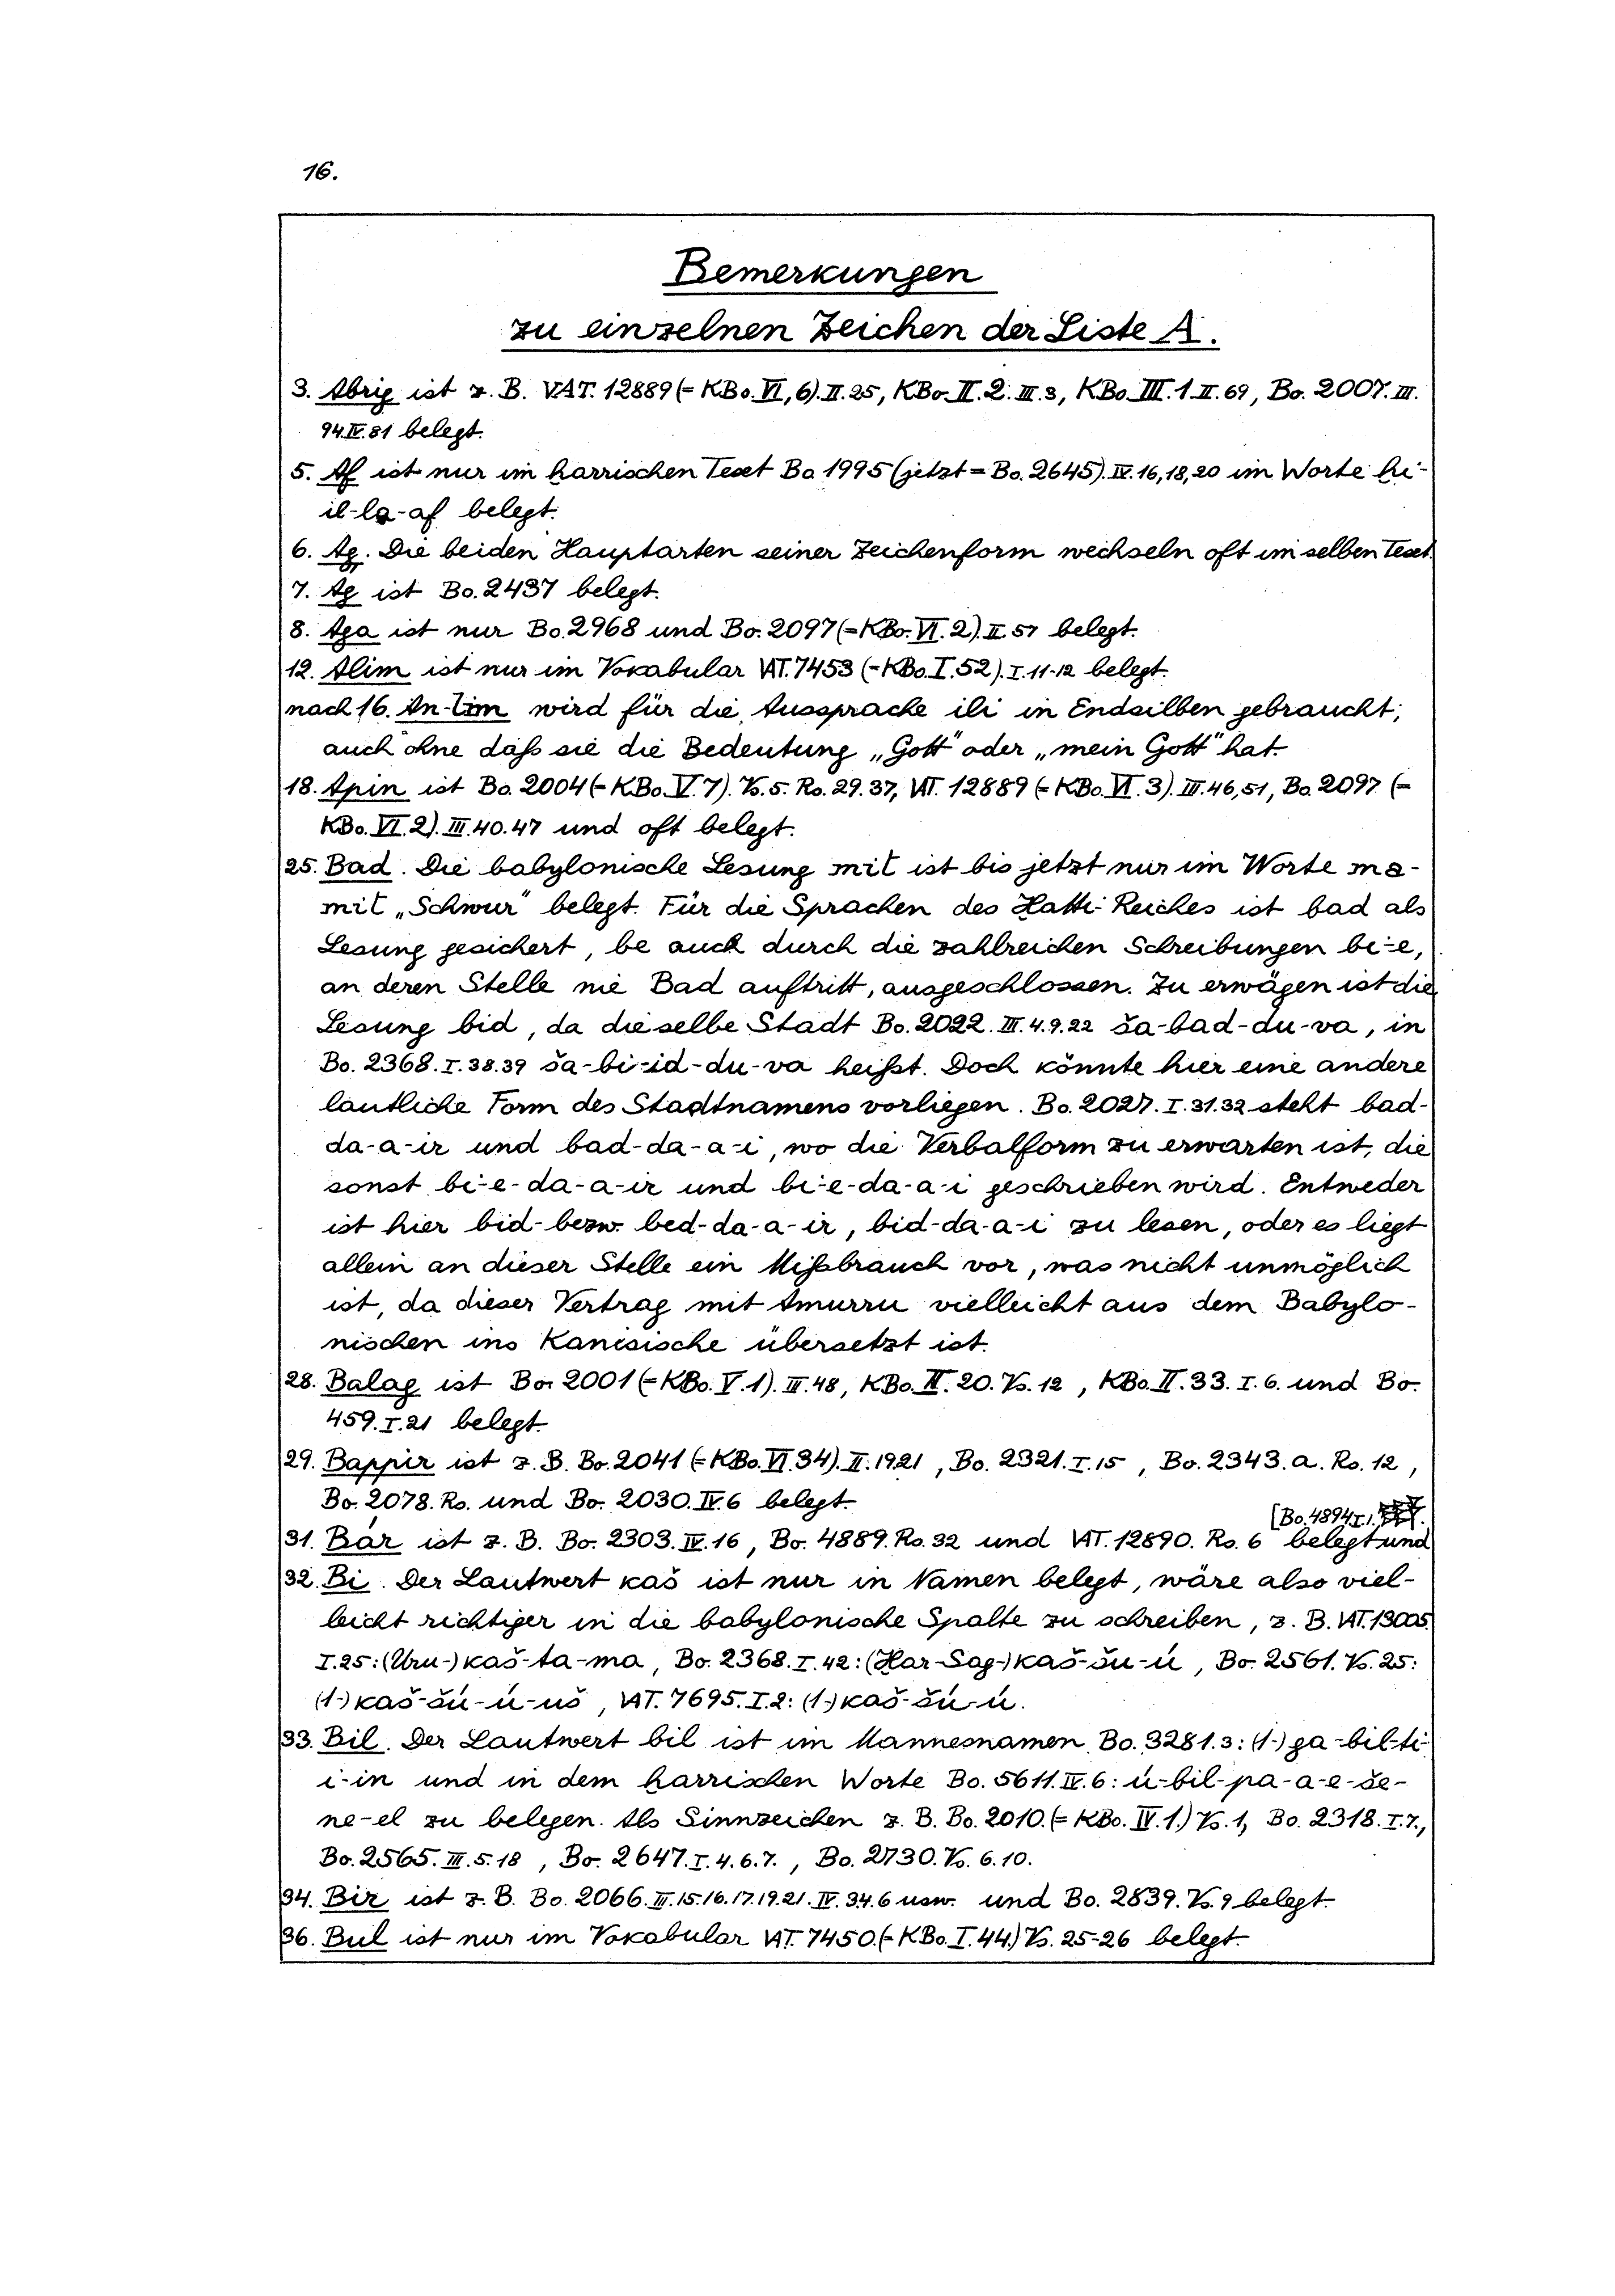 16.
Bemerkungen
zu einzelnen Zeichen der Liste A.
3. Abrig ist z. B. VAT. 12889 (= KBo. VI, 6). II. 25, KBo. II. 2. III. 3, KBo. III. 1. II. 69, Bo. 2007. III.
94. IV. 81 belegt.
5. Af ist nur im harrischen Text Bo. 1995 (jetzt = Bo. 2645). IV. 16, 18, 20 im Worte hi-
il-la-af belegt.
6. Ag. Die beiden Hauptarten seiner Zeichenform wechseln oft im selben Text.
7. Ag ist Bo. 2437 belegt.
8. Aga ist nur Bo. 2968 und Bo. 2097 (= KBo. VI. 2). II. 57 belegt.
12. Alim ist nur im Vokabular VAT. 7453 (= KBo. I. 52). I. 11-12 belegt.
nach 16. An-lim wird für die Aussprache ili in Endsilben gebraucht,
auch ohne daß sie die Bedeutung „Gott" oder „mein Gott" hat.
18. Apin ist Bo. 2004 (= KBo. V. 7). Vs. 5. Rs. 29. 37, VAT. 12889 (= KBo. VI. 3). III. 46, 51, Bo. 2097 (=
KBo. VI. 2). III. 40. 47 und oft belegt.
25. Bad. Die babylonische Lesung mit ist bis jetzt nur im Worte ma-
mit „Schwur" belegt. Für die Sprachen des Hatti-Reiches ist bad als
Lesung gesichert, be auch durch die zahlreichen Schreibungen bi-e,
an deren Stelle nie Bad auftritt, ausgeschlossen. Zu erwägen ist die
Lesung bid, da dieselbe Stadt Bo. 2022. III. 4. 9. 22 ša-bad-du-va, in
Bo. 2368. I. 38. 39 ša-bi-id-du-va heißt. Doch könnte hier eine andere
lautliche Form des Stadtnamens vorliegen. Bo. 2027. I. 31. 32 steht bad-
da-a-ir und bad-da-a-i, wo die Verbalform zu erwarten ist, die
sonst bi-e-da-a-ir und bi-e-da-a-i geschrieben wird. Entweder
ist hier bid- bezw. bed-da-a-ir, bid-da-a-i zu lesen, oder es liegt
allein an dieser Stelle ein Mißbrauch vor, was nicht unmöglich
ist, da dieser Vertrag mit Amurru vielleicht aus dem Babylo-
nischen ins Kanisische übersetzt ist.
28. Balag ist Bo. 2001 (= KBo. V. 1). III. 48, KBo. II. 20. Vs. 12, KBo. II. 33. I. 6. und Bo.
459. I. 21 belegt.
29. Bappir ist z. B. Bo. 2041 (= KBo. VI. 34). II. 19.21, Bo. 2321. I. 15, Bo. 2343. a. Rs. 12,
Bo. 2078. Rs. und Bo. 2030. IV. 6 belegt.
[Bo. 4894. I. 1.
31. Bár ist z. B. Bo. 2303. IV. 16, Bo. 4889. Rs. 32 und VAT. 12890. Rs. 6 belegt und
32. Bi. Der Lautwert kaš ist nur in Namen belegt, wäre also viel-
leicht richtiger in die babylonische Spalte zu schreiben, z. B. VAT. 13005.
I. 25: (Uru-) kaš-ta-ma, Bo. 2368. I. 42: (Har-Sag-) kaš-šu-ú, Bo. 2561. Vs. 25:
(1-) kaš-šú-ú-uš, VAT. 7695. I. 2: (1-) kaš-šú-ú.
33. Bil. Der Lautwert bil ist im Mannesnamen Bo. 3281. 3: (1-) ga-bil-ti-
i-in und in dem harrischen Worte Bo. 5611. IV. 6: ú-bil-pa-a-e-še-
ne-el zu belegen. Als Sinnzeichen z. B. Bo. 2010. (= KBo. IV. 1.) Vs. 1, Bo. 2318. I. 7.,
Bo. 2565. III. 5. 18, Bo. 2647. I. 4. 6. 7., Bo. 2730. Vs. 6. 10.
34. Bir ist z. B. Bo. 2066. III. 15. 16. 17. 19. 21. IV. 3.4. 6 usw. und Bo. 2839. Vs. 9 belegt.
36. Bul ist nur im Vokabular VAT. 7450. (= KBo. I. 44.) Vs. 25-26 belegt.